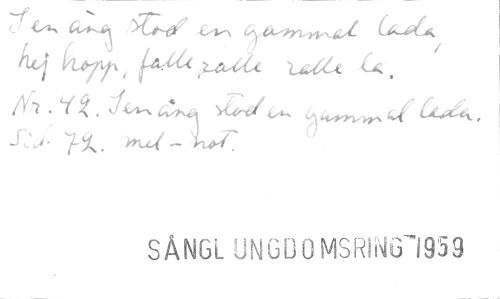 I en äng stod en gammal lada,
hej hopp, falle ralle ralle la.
Nr. 42. I en äng stod en gammal lada.
Sid. 72. mel-not.
SÅNGL UNGDOMSRING 1959